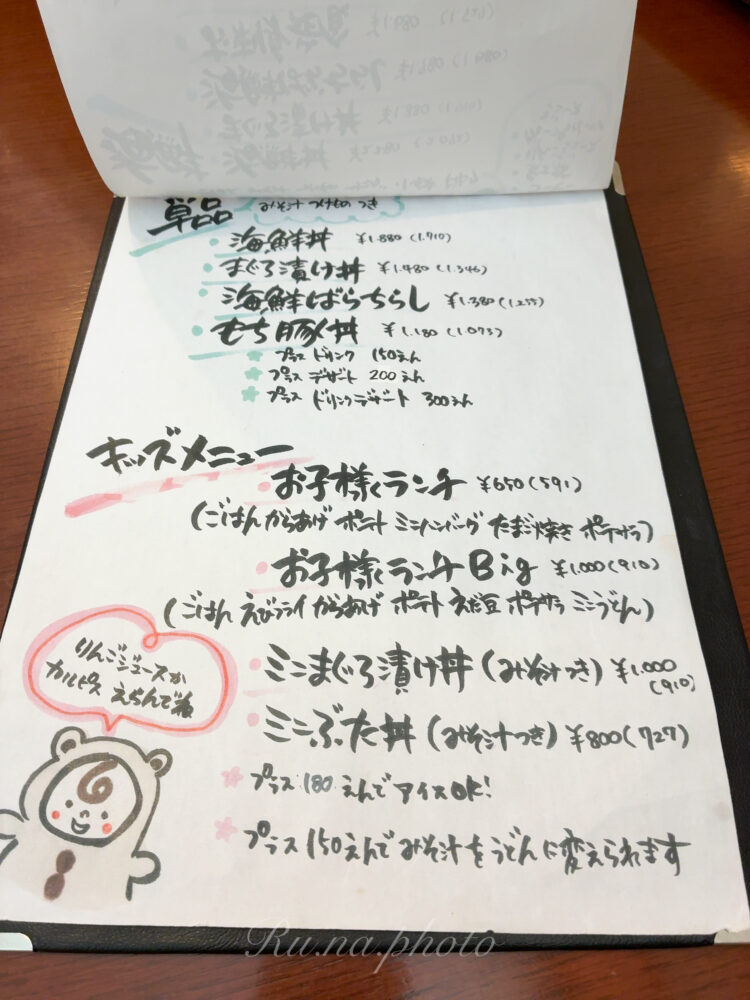 単品
みそ汁 つけもの つき
・海鮮丼 ¥1.880(1.710)
・まぐろ漬け丼 ¥1.480(1.346)
・海鮮ばらちらし ¥1.380(1.255)
・もち豚丼 ¥1.180(1.073)
プラス ドリンク 150えん
プラス デザート 200えん
プラス ドリンクデザート 300えん
キッズメニュー
・お子様ランチ ¥650(591)
(ごはん からあげ ポテト ミニハンバーグ たまご焼き ポテサラ)
・お子様ランチBig ¥1.000(910)
(ごはん えびフライ からあげ ポテト えだ豆 ポテサラ ミニうどん)
りんごジュースか
カルピス えらんでね
・ミニまぐろ漬け丼(みそ汁つき)¥1.000
(910)
・ミニぶた丼(みそ汁つき)¥800(727)
プラス 180えんでアイスOK!
プラス 150えんでみそ汁をうどんに変えられます
Ru.na.photo